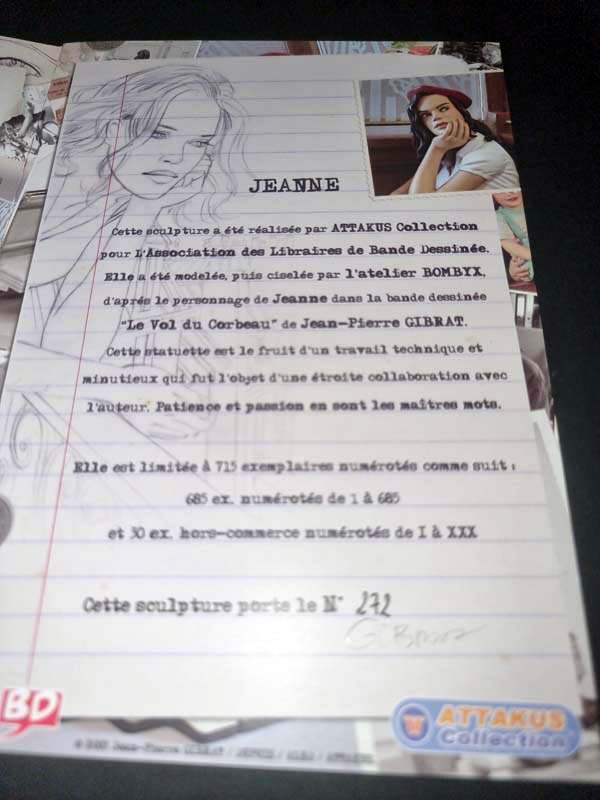 JEANNE
Cette sculpture a été réalisée par ATTAKUS Collection
pour L'Association des Libraires de Bande Dessinée.
Elle a été modelée, puis ciselée par l'atelier BOMBYX,
d'après le personnage de Jeanne dans la bande dessinée
"Le Vol du Corbeau" de Jean-Pierre GIBRAT.
Cette statuette est le fruit d'un travail technique et
minutieux qui fut l'objet d'une étroite collaboration avec
l'auteur. Patience et passion en sont les maîtres mots.
Elle est limitée à 715 exemplaires numérotés comme suit :
685 ex. numérotés de 1 à 685
et 30 ex. hors-commerce numérotés de I à XXX
Cette sculpture porte le N° 272
GIBRAT
BD
ATTAKUS
Collection
Jean-Pierre GIBRAT / DUPUIS /